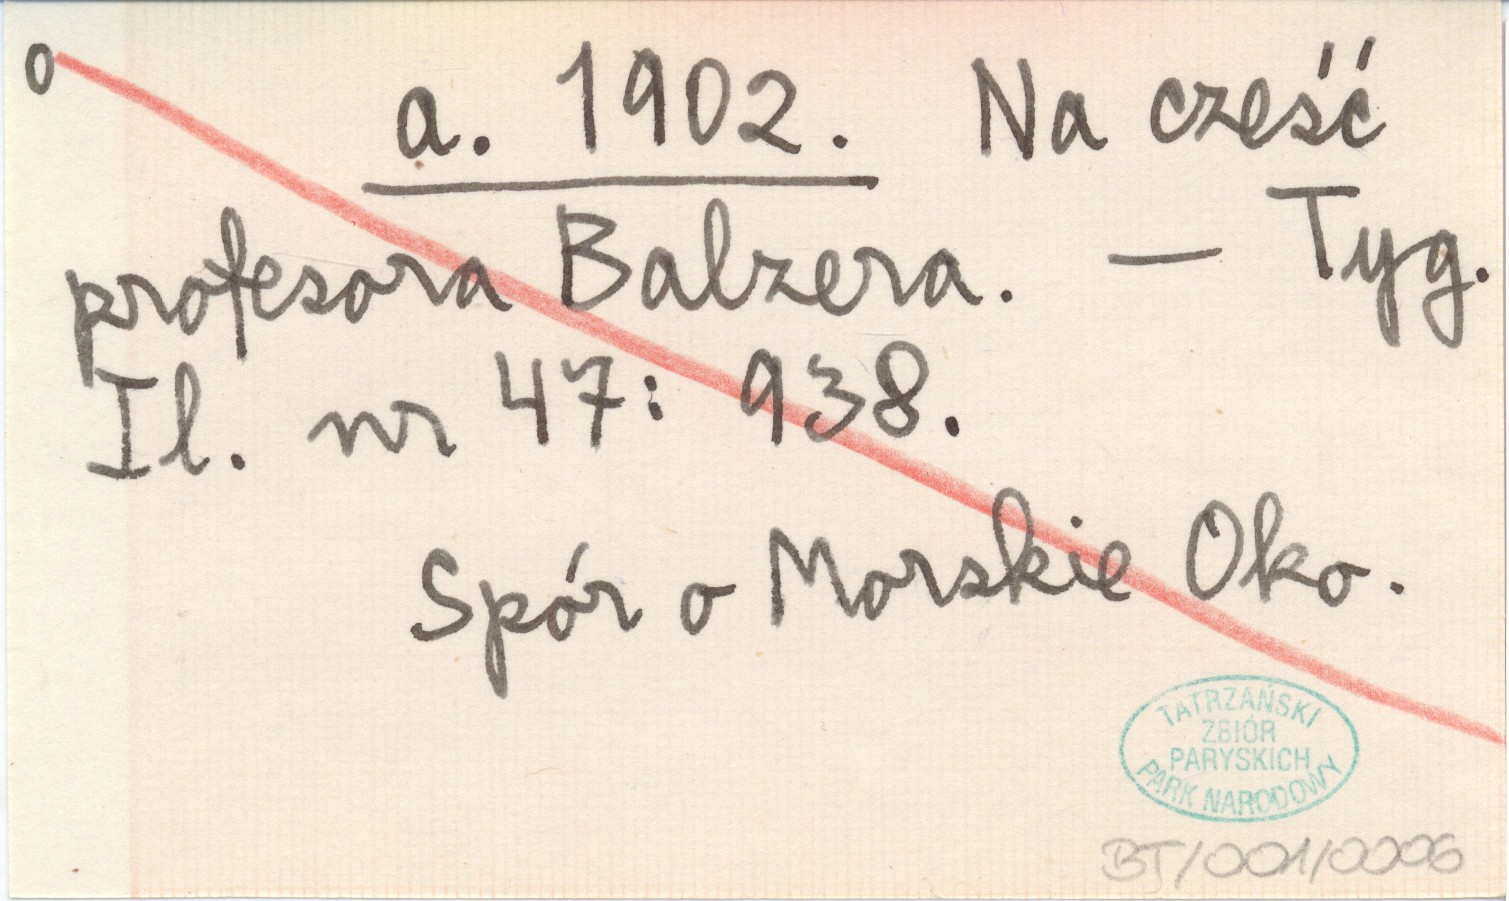 o
a. 1902. Na cześć
profesora Balzera. — Tyg.
Il. nr 47: 938.
Spór o Morskie Oko.
TATRZAŃSKI
ZBIÓR
PARYSKICH
PARK NARODOWY
BT/001/0006